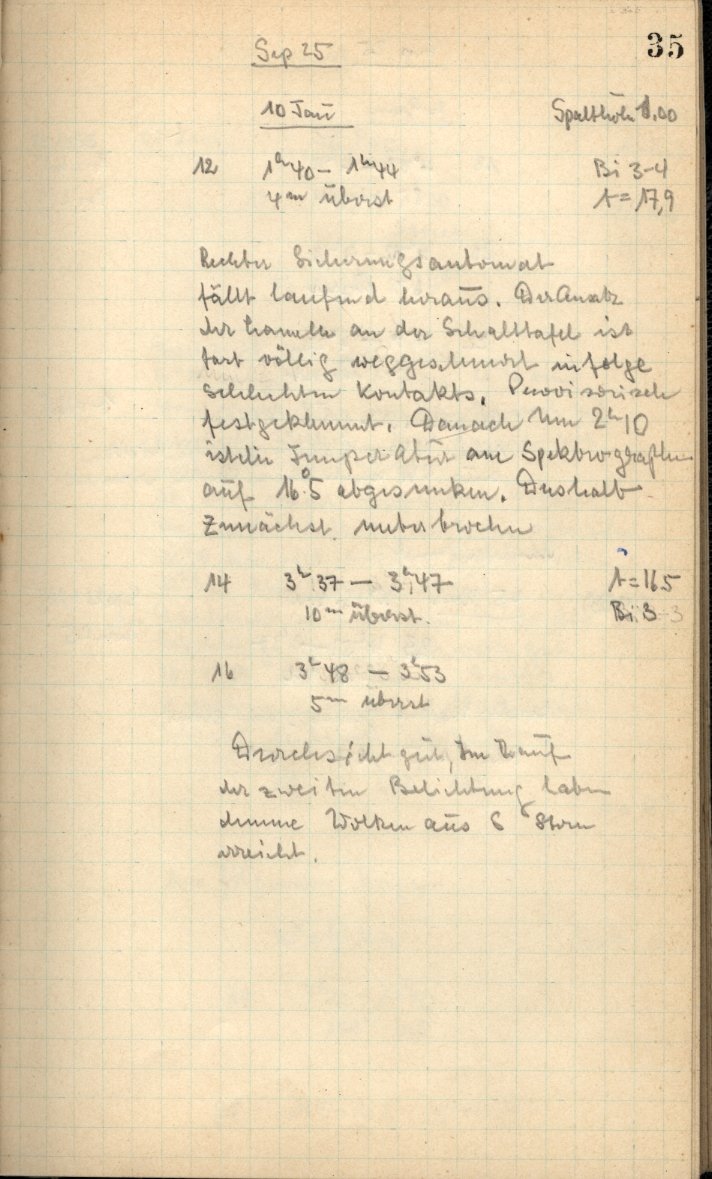 35
Sep 25
10 Tau
Spalthöhe 1.00
12 1h40 – 1h44 Bi 3-4
4m überst t = 17,9
Rechter Sicherungsautomat
fällt laufend heraus. Der Ansatz
der an der Schalttafel ist
fast völlig weggeschmort infolge
schlechten Kontakts. Provisorisch
festgeklemmt. Danach um 2h10
ist die Temperatur am Spektrographen
auf 16°5 abgesunken. Deshalb
zunächst unterbrochen
14 3h37 — 3h47 t = 16.5
10m überst. Bi 3
16 3h48 — 3h53
5m überst
Durchsicht gut, Im Lauf
der zweiten Belichtung haben
dünne Wolken aus S Stern
erreicht.